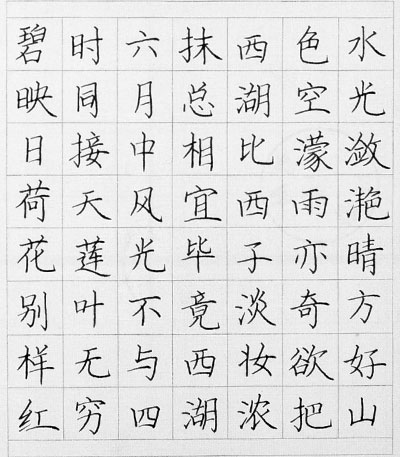 水光潋滟晴方好山
色空濛雨亦奇欲把
西湖比西子淡妆浓
抹总相宜毕竟西湖
六月中风光不与四
时同接天莲叶无穷
碧映日荷花别样红